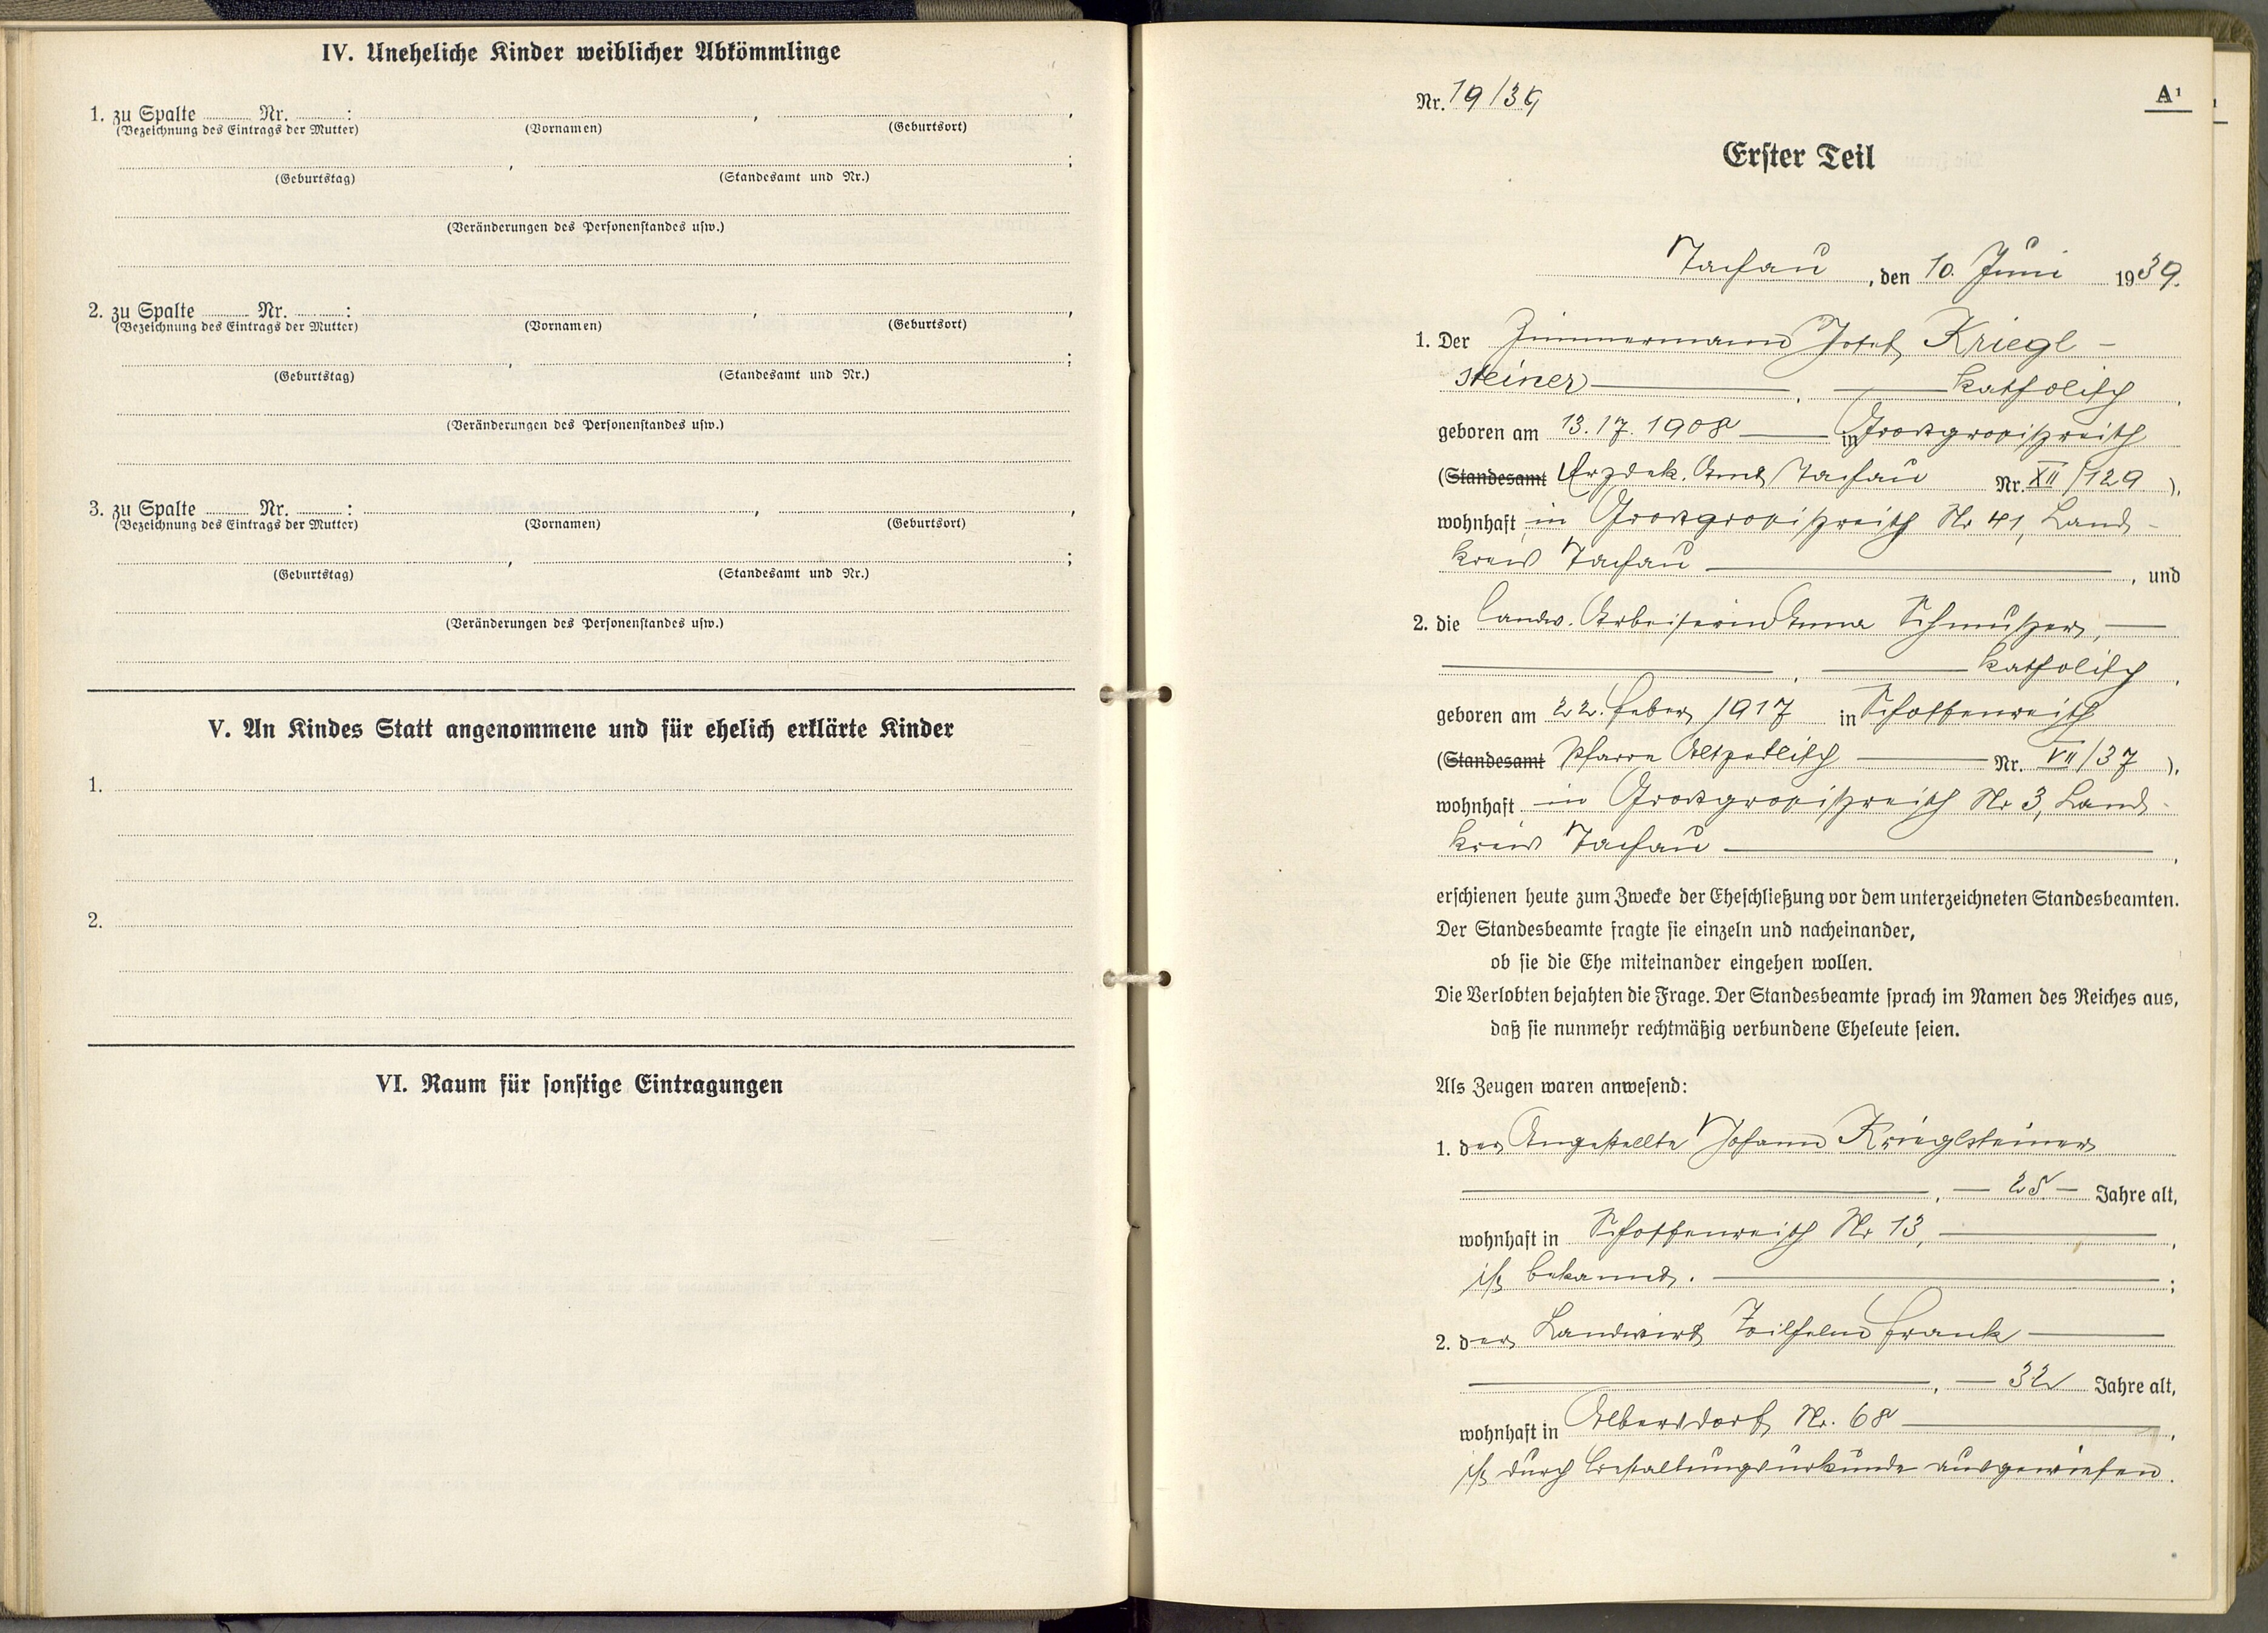 IV. Uneheliche Kinder weiblicher Abkömmlinge
1. zu Spalte Nr. : , ,
(Bezeichnung des Eintrags der Mutter) (Vornamen) (Geburtsort)
, ;
(Geburtstag) (Standesamt und Nr.)
(Veränderungen des Personenstandes usw.)
2. zu Spalte Nr. : , ,
(Bezeichnung des Eintrags der Mutter) (Vornamen) (Geburtsort)
, ;
(Geburtstag) (Standesamt und Nr.)
(Veränderungen des Personenstandes usw.)
3. zu Spalte Nr. : , ,
(Bezeichnung des Eintrags der Mutter) (Vornamen) (Geburtsort)
, ;
(Geburtstag) (Standesamt und Nr.)
(Veränderungen des Personenstandes usw.)
V. An Kindes Statt angenommene und für ehelich erklärte Kinder
1.
2.
VI. Raum für sonstige Eintragungen
Nr. 19/39
A¹
Erster Teil
Tachau, den 10. Juni 1939.
1. Der Zimmermann Josef Kriegl-
steiner , katholisch,
geboren am 13. 1908 in Großgropitzreith
(Standesamt Erzdek. Amt Tachau Nr. XII/129),
wohnhaft in Großgropitzreith Nr 41, Land-
kreis Tachau, und
2. die landw. Arbeiterin Anna Schmutzer,
, katholisch,
geboren am 22. Feber 1917 in Schossenreith
(Standesamt Pfarre Altzedlisch Nr. VII/37),
wohnhaft in Großgropitzreith Nr 3, Land-
kreis Tachau,
erschienen heute zum Zwecke der Eheschließung vor dem unterzeichneten Standesbeamten.
Der Standesbeamte fragte sie einzeln und nacheinander,
ob sie die Ehe miteinander eingehen wollen.
Die Verlobten bejahten die Frage. Der Standesbeamte sprach im Namen des Reiches aus,
daß sie nunmehr rechtmäßig verbundene Eheleute seien.
Als Zeugen waren anwesend:
1. der Angestellte Johann Krieglsteiner
, — 25 — Jahre alt,
wohnhaft in Schossenreith Nr 13,
ist bekannt. ;
2. der Landwirt Wilhelm Frank
, — 32 Jahre alt,
wohnhaft in Albersdorf Nr. 68,
ist durch Bestallungsurkunde ausgewiesen.